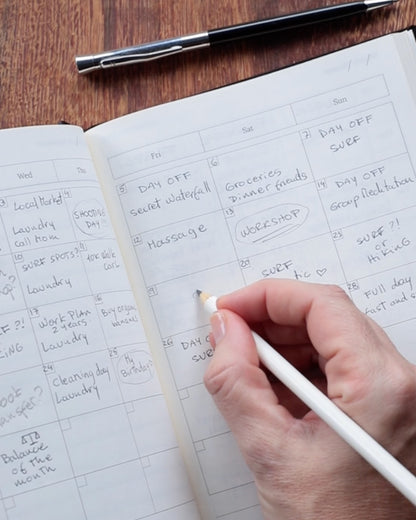 Wed
Thu
Fri
Sat
Sun
3
Local Market
Laundry
call Mom
4
SHOOTING
DAY
5
DAY OFF
secret waterfall
6
Groceries
Dinner friends
7
DAY OFF
SURF
10
SURF SPOTS?
Laundry
11
12
Massage
13
WORKSHOP
14
DAY OFF
Group Meditation
17
Work Plan
2 years
Laundry
18
Buy organ
19
20
SURF
♡
21
SURF ?!
or
HiKiNG
24
Cleaning day
Laundry
25
My
Birthday
26
DAY O
SU
28
Full day
Balance
of the
month